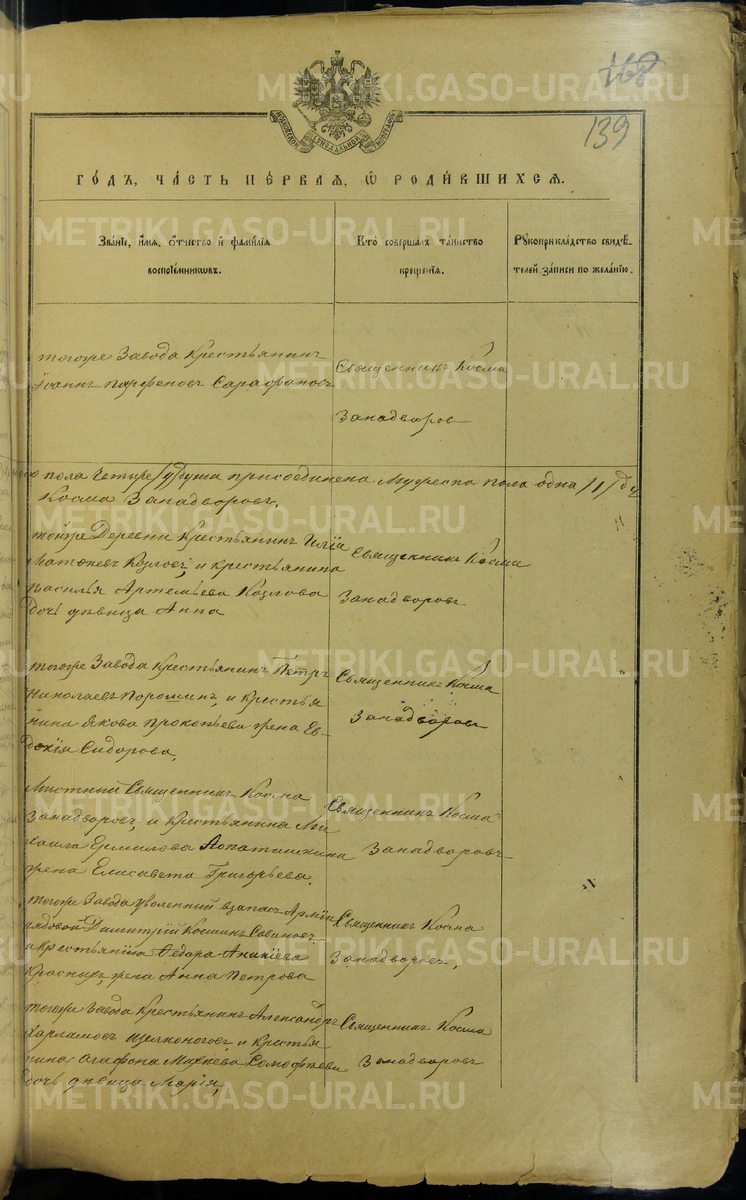 168
139
МОСКОВСКОЙ СѴНОДАЛЬНОЙ ТИПОГРАФІИ
ГО́ДЪ, ЧА́СТЬ ПЕ́РВАЯ, Ѽ РОДИ́ВШИХСЯ.
Зва́нїе, и҆́мя, ѻ҆́тчество и҆ фами́лїя
воспрїе́мникѡвъ.
Кто̀ соверша́лъ та́инство
креще́нїя.
Рꙋкоприкла́дство свидѣ́-
телей за́писи по жела́нїю.
тогоже Завода Крестьянинъ
Іоаннъ Парфеновъ Сарафановъ
Священникъ Косма
Западворов
пола Четыре /4/ души присоединена Мужеска пола одна /1/ ду
Косма Западворовъ.
тойже Деревни Крестьянинъ Илія
Матѳеевъ Козловъ, и крестьянина
Василья Артемьева Козлова
дочь дѣвица Анна
Священникъ Косма
Западворовъ
тогоже Завода Крестьянинъ Петръ
Николаевъ Порошинъ, и Крестья
нина Якова Прокопьева жена Ев-
докія Сидорова,
Священникъ Косма
Западворовъ
Мѣстный Священникъ Косма
Западворовъ, и Крестьянина Ми
хаила Ермилова Лопаташкина
жена Елисавета Григорьева.
Священникъ Косма
Западворовъ
тогоже Завода уволенный взапасъ Арміи
рядовой Димитрій Савиновъ
и Крестьянина Ѳедора Аникіева
Красныхъ жена Анна Петрова
Священникъ Косма
Западворовъ,
тогоже Завода Крестьянинъ Александръ
Харламовъ Щелконоговъ, и Крестья
нина Агафона Михеева
дочь дѣвица Марія,
Священникъ Косма
Западворовъ
METRIKI.GASO-URAL.RU